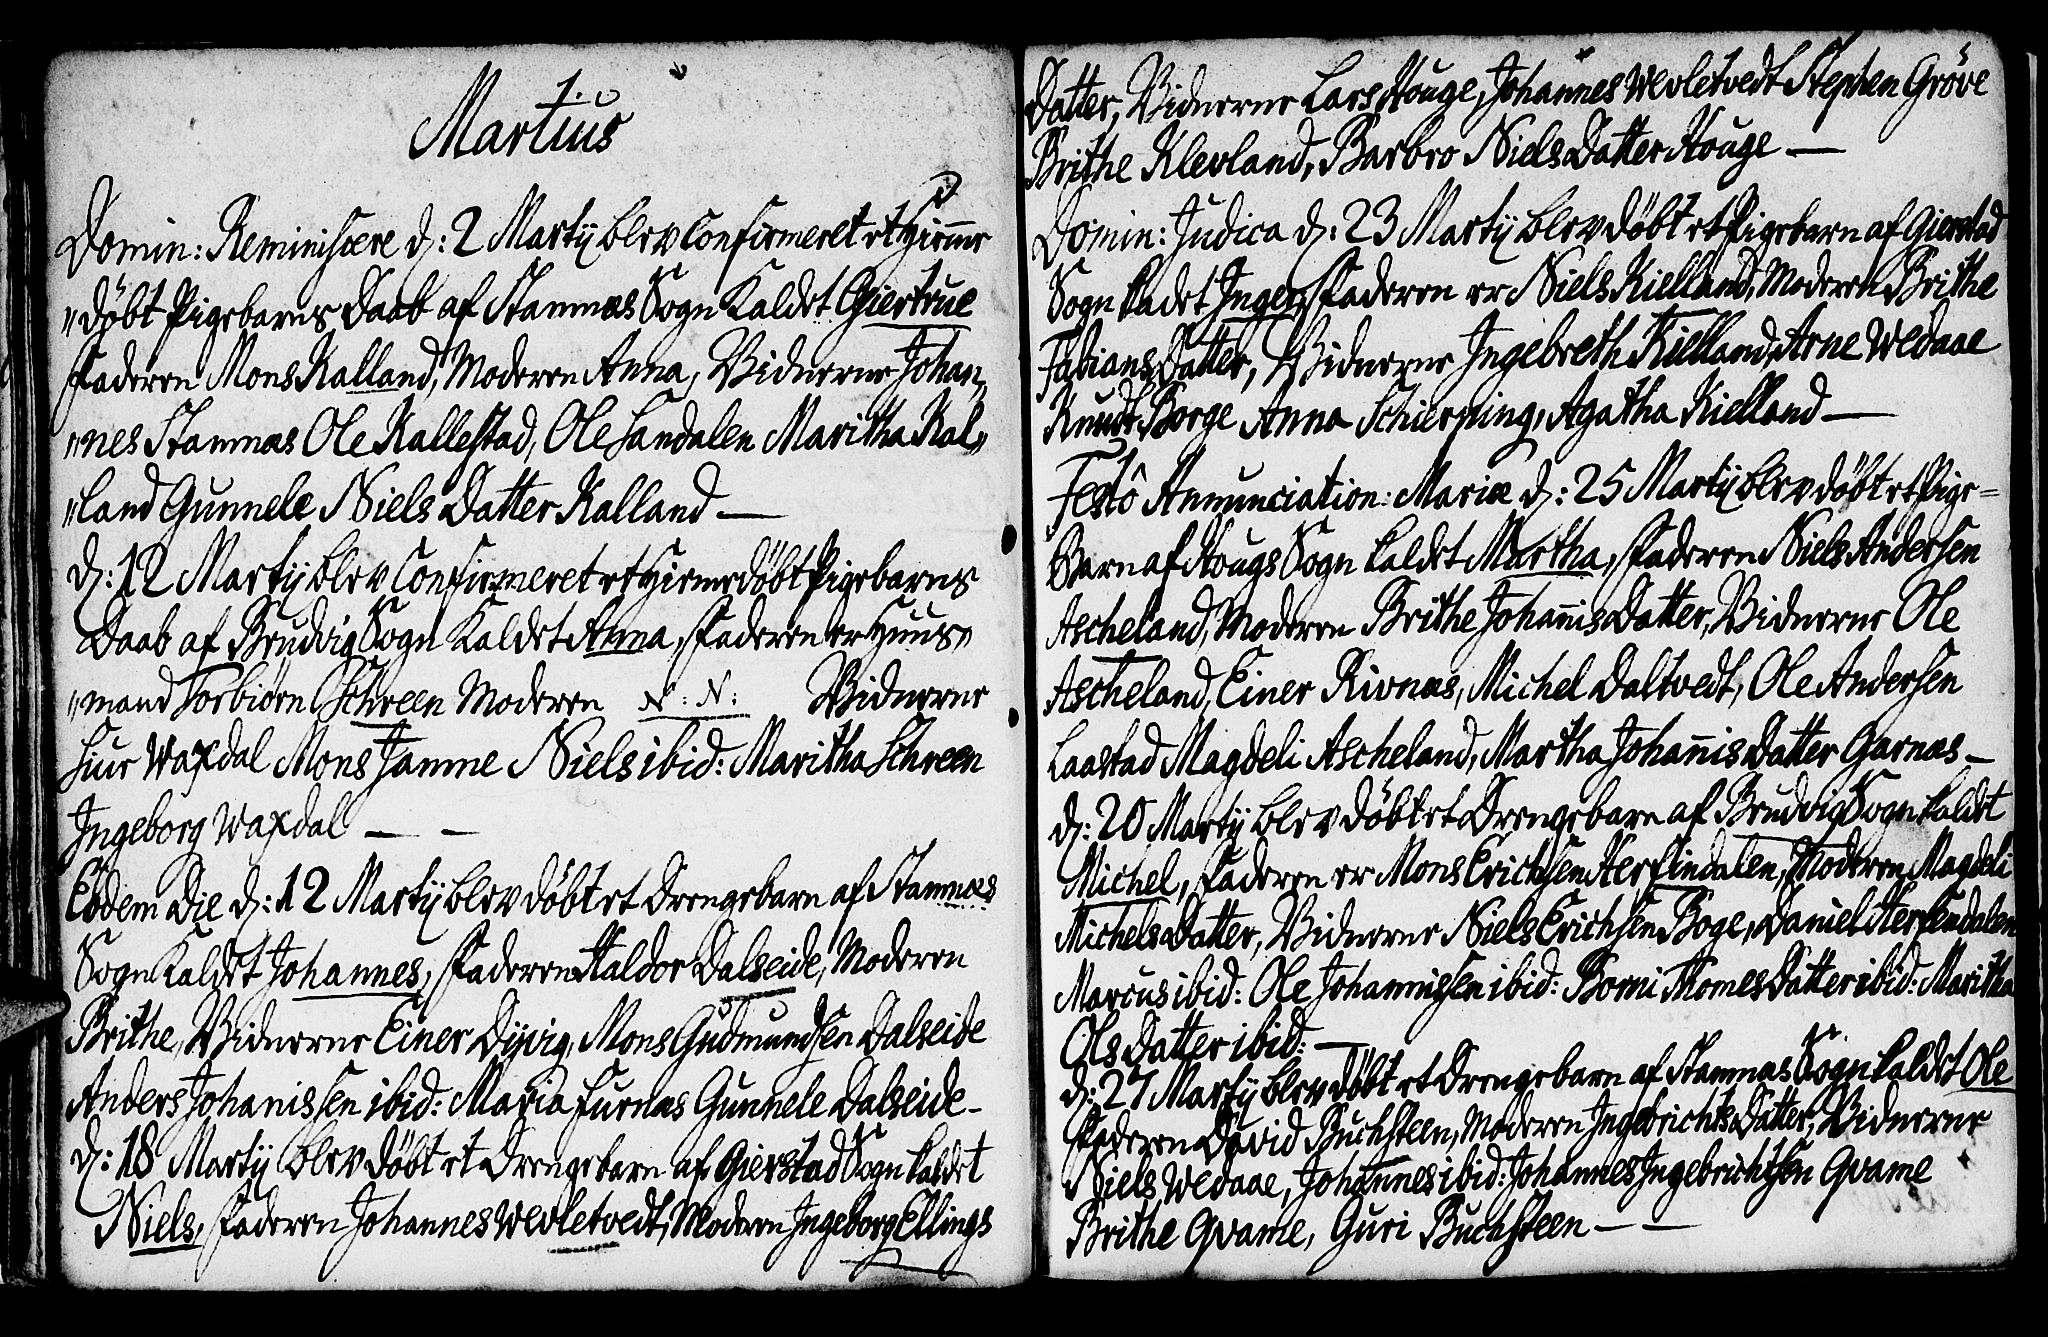 Martius
Domin: Reminiscere d: 2 Martij blev Confirmeret et Hieme
"døbt Pigebarns Daab af Stamnæs Sogn Kaldet Giertrue
Faderen Mons Kalland, Moderen Anna, Vidnerne Johan,,
"nes Stamnæs Ole Kallestad, Ole Sandalen Maritha Kal,,
"land Gunnele Niels Datter Kalland —
d: 12 Martij blev Confirmeret et Hiemedøbt Pigebarns
Daab af Brudvig Sogn Kaldet Anna, Faderen er Huus,,
"mand Torbiørn Schreen Moderen N: N: Vidnerne
Siur Waxdal Mons Jamne Niels ibid: Maritha Schreen
Ingeborg Waxdal — —
Eodem Die d: 12 Martij blev døbt et Drengebarn af Stamnæs
Sogn Kaldet Johannes, Faderen Haldor Dalseide, Moderen
Brithe, Vidnerne Einer Dyvig, Mons Gudmundsen Dalseide
Anders Johanissen ibid: Maria Furnæs Gunnele Dalseide -
d: 18 Martij blev døbt et Drengebarn af Gierstad Sogn kaldet
Niels, Faderen Johannes Wevletvedt, Moderen Ingeborg Ellings
Datter, Vidnerne Lars Houge, Johannes Wevletvedt Stephen Grøve
Brithe Klevland, Barbro Niels Datter Houge —
Domin: Judica d: 23 Martij blev døbt et Pigebarn af Gierstad
Sogn kadet Inger, Faderen er Niels Kielland, Moderen Brithe
Fabians Datter, Vidnerne Ingebreth Kielland, Arne Wedaae
Knudt Borge Anna Schierping, Agatha Kielland —
Festô Annunciation: Mariæ d: 25 Martij blev døbt et Pige=
Barn af Hougs Sogn kaldet Martha, Faderen Niels Andersen
Ascheland, Moderen Brithe Johannis Datter, Vidnerne Ole
Ascheland, Einer Rivnæs, Michel Daltvedt, Ole Andersen
Laastad Magdeli Ascheland, Martha Johannis Datter Garnæs —
d: 20 Martij blev døbt et Drengebarn af Brudvig Sogn kaldt
Michel, Faderen er Mons Erichsen Herfindalen, Moderen Magdeli
Michels Datter, Vidnerne Niels Erichsen Boge, Daniel Herfendalen
Marcus ibid: Ole Johannissen ibid: Borni Thomes Datter ibid: Maritha
Ols Datter ibid: —
d: 27 Martij blev døbt et Drengebarn af Stamnæs Sogn kaldet Ole
Faderen David Buchsteen, Moderen Ingebrichts Datter, Vidnerne
Niels Wedaae, Johannes ibid: Johannes Ingebrichtsen Qvame
Brithe Qvame, Guri Buchsteen — —